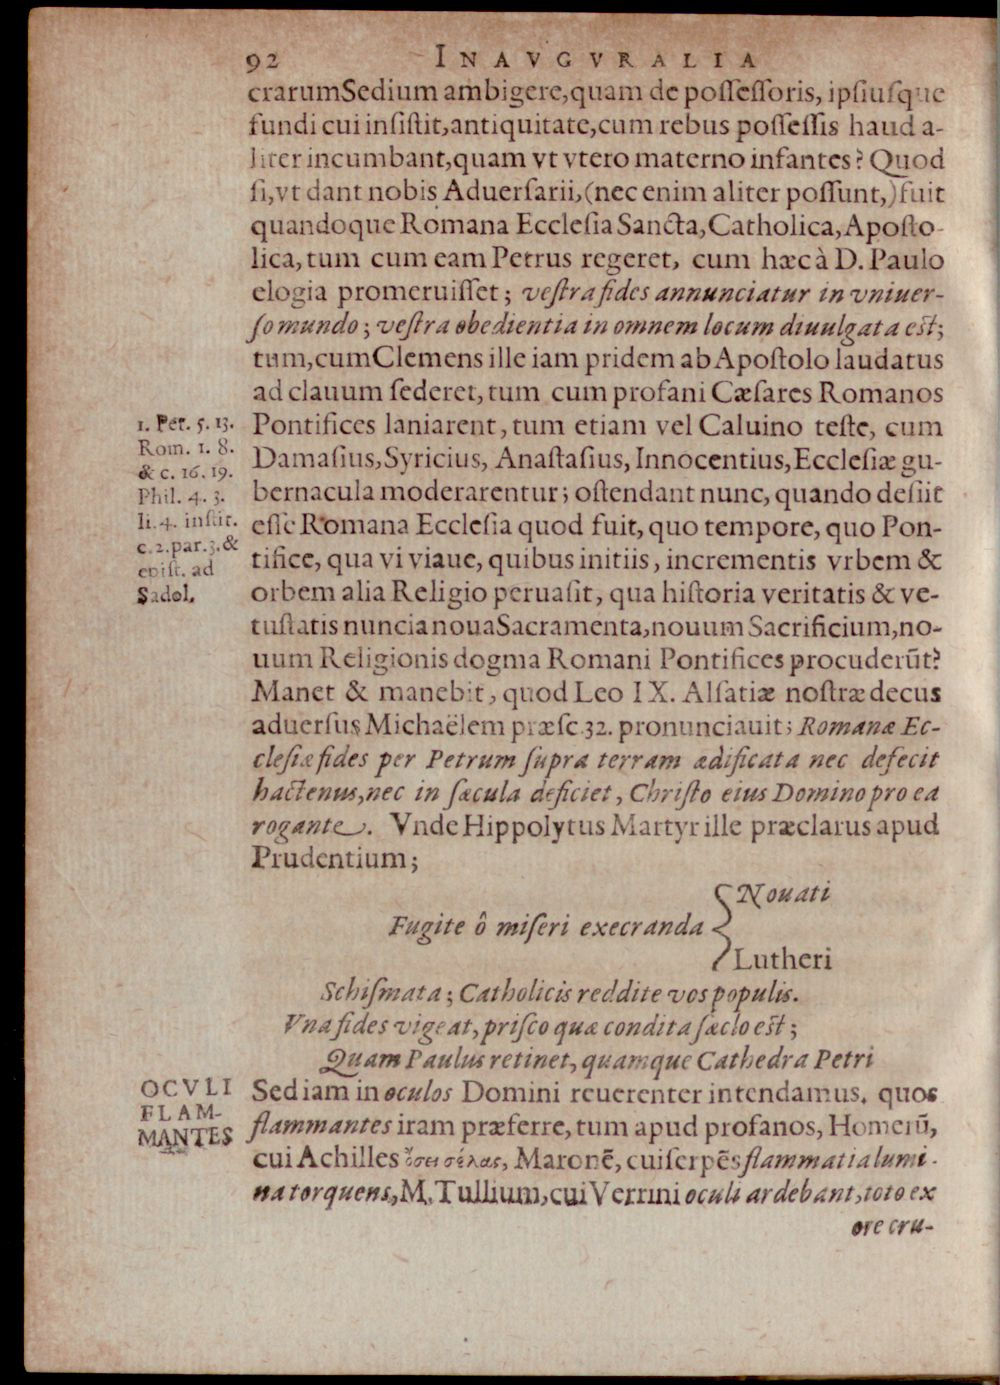 92 INAVGVRALIA
crarum Sedium ambigere, quam de poſſeſſoris, ipſiuſque
fundi cui inſiſtit, antiquitate, cum rebus poſſeſſis haud a-
liter incumbant, quam vt vtero materno infantes? Quod
ſi, vt dant nobis Aduerſarii, (nec enim aliter poſſunt,) fuit
quandoque Romana Eccleſia Sancta, Catholica, Apoſto-
lica, tum cum eam Petrus regeret, cum hæc à D. Paulo
elogia promeruiſſet; veſtra fides annunciatur in vniuer-
ſo mundo; veſtra obedientia in omnem locum diuulgata eſt;
tum, cum Clemens ille iam pridem ab Apoſtolo laudatus
ad clauum ſederet, tum cum profani Cæſares Romanos
Pontifices laniarent, tum etiam vel Caluino teſte, cum
Damaſius, Syricius, Anaſtaſius, Innocentius, Eccleſiæ gu-
bernacula moderarentur; oſtendant nunc, quando deſiit
eſſe Romana Eccleſia quod fuit, quo tempore, quo Pon-
tifice, qua vi viaue, quibus initiis, incrementis vrbem &
orbem alia Religio peruaſit, qua hiſtoria veritatis & ve-
tuſtatis nuncia noua Sacramenta, nouum Sacrificium, no-
uum Religionis dogma Romani Pontifices procuderūt?
Manet & manebit, quod Leo IX. Alſatiæ noſtræ decus
aduerſus Michaëlem præſc. 32. pronunciauit; Romanæ Ec-
cleſiæ fides per Petrum ſupra terram ædificata nec defecit
hactenus, nec in ſæcula deficiet, Chriſto eius Domino pro ea
rogante. Vnde Hippolytus Martyr ille præclarus apud
Prudentium;
1. Pet. 5. 13.
Rom. 1. 8.
& c. 16. 19.
Phil. 4. 3.
li. 4. inſtit.
c. 2. par. 3. &
epiſt. ad
Sadol.
Nouati
Fugite ô miſeri execranda
Lutheri
Schiſmata; Catholicis reddite vos populis.
Vna fides vigeat, priſco quæ condita ſæclo eſt;
Quam Paulus retinet, quamque Cathedra Petri
OCVLI
FLAM-
MANTES
Sed iam in oculos Domini reuerenter intendamus, quos
flammantes iram præferre, tum apud profanos, Homerū,
cui Achilles ὄσσει σέλας, Maronē, cui ſerpēs flammatia lumi-
na torquens, M. Tullium, cui Verrini oculi ardebant, toto ex
ore cru-